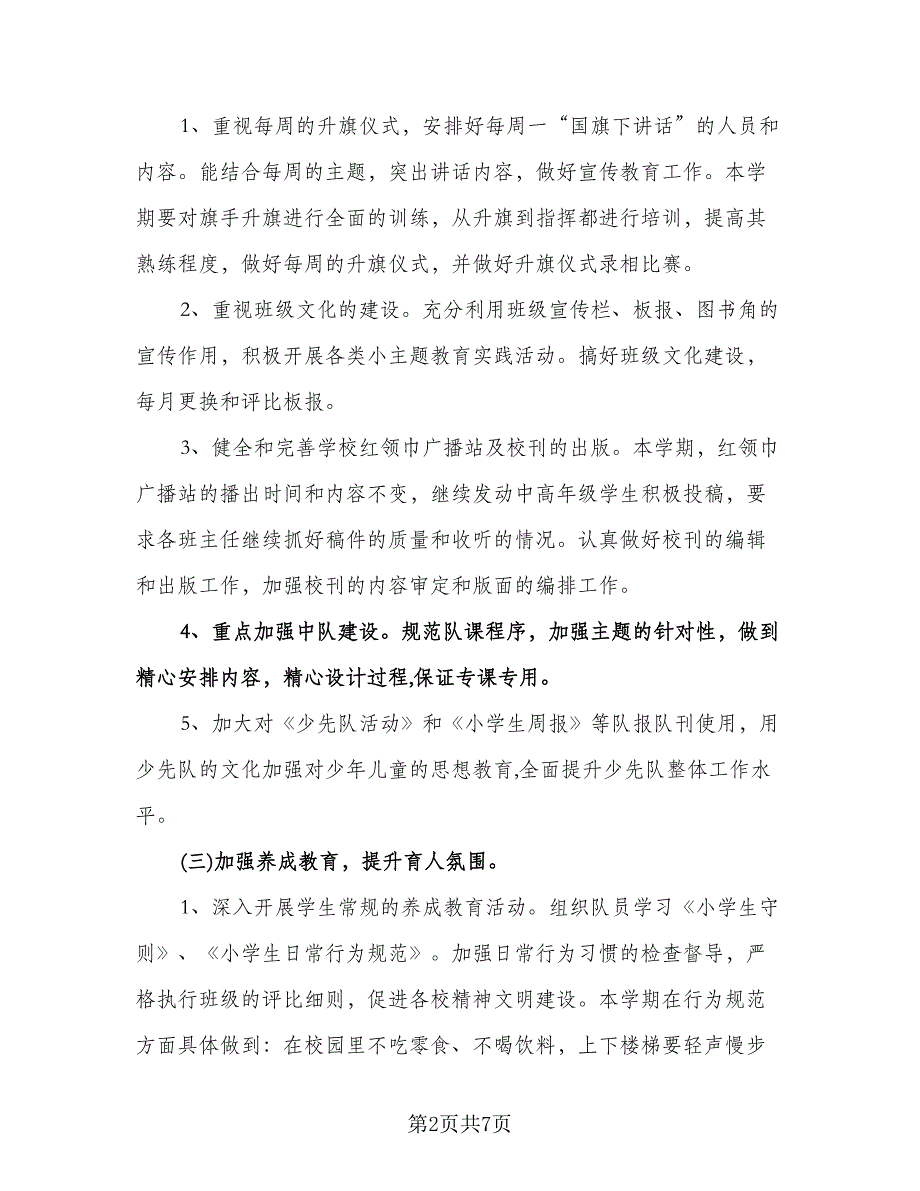 1、重视每周的升旗仪式，安排好每周一“国旗下讲话”的人员和
内容。能结合每周的主题，突出讲话内容，做好宣传教育工作。本学
期要对旗手升旗进行全面的训练，从升旗到指挥都进行培训，提高其
熟练程度，做好每周的升旗仪式，并做好升旗仪式录相比赛。
2、重视班级文化的建设。充分利用班级宣传栏、板报、图书角的
宣传作用，积极开展各类小主题教育实践活动。搞好班级文化建设，
每月更换和评比板报。
3、健全和完善学校红领巾广播站及校刊的出版。本学期，红领巾
广播站的播出时间和内容不变，继续发动中高年级学生积极投稿，要
求各班主任继续抓好稿件的质量和收听的情况。认真做好校刊的编辑
和出版工作，加强校刊的内容审定和版面的编排工作。
4、重点加强中队建设。规范队课程序，加强主题的针对性，做到
精心安排内容，精心设计过程,保证专课专用。
5、加大对《少先队活动》和《小学生周报》等队报队刊使用，用
少先队的文化加强对少年儿童的思想教育,全面提升少先队整体工作水
平。
(三)加强养成教育，提升育人氛围。
1、深入开展学生常规的养成教育活动。组织队员学习《小学生守
则》、《小学生日常行为规范》。加强日常行为习惯的检查督导，严
格执行班级的评比细则，促进各校精神文明建设。本学期在行为规范
方面具体做到：在校园里不吃零食、不喝饮料，上下楼梯要轻声慢步
第2页共7页